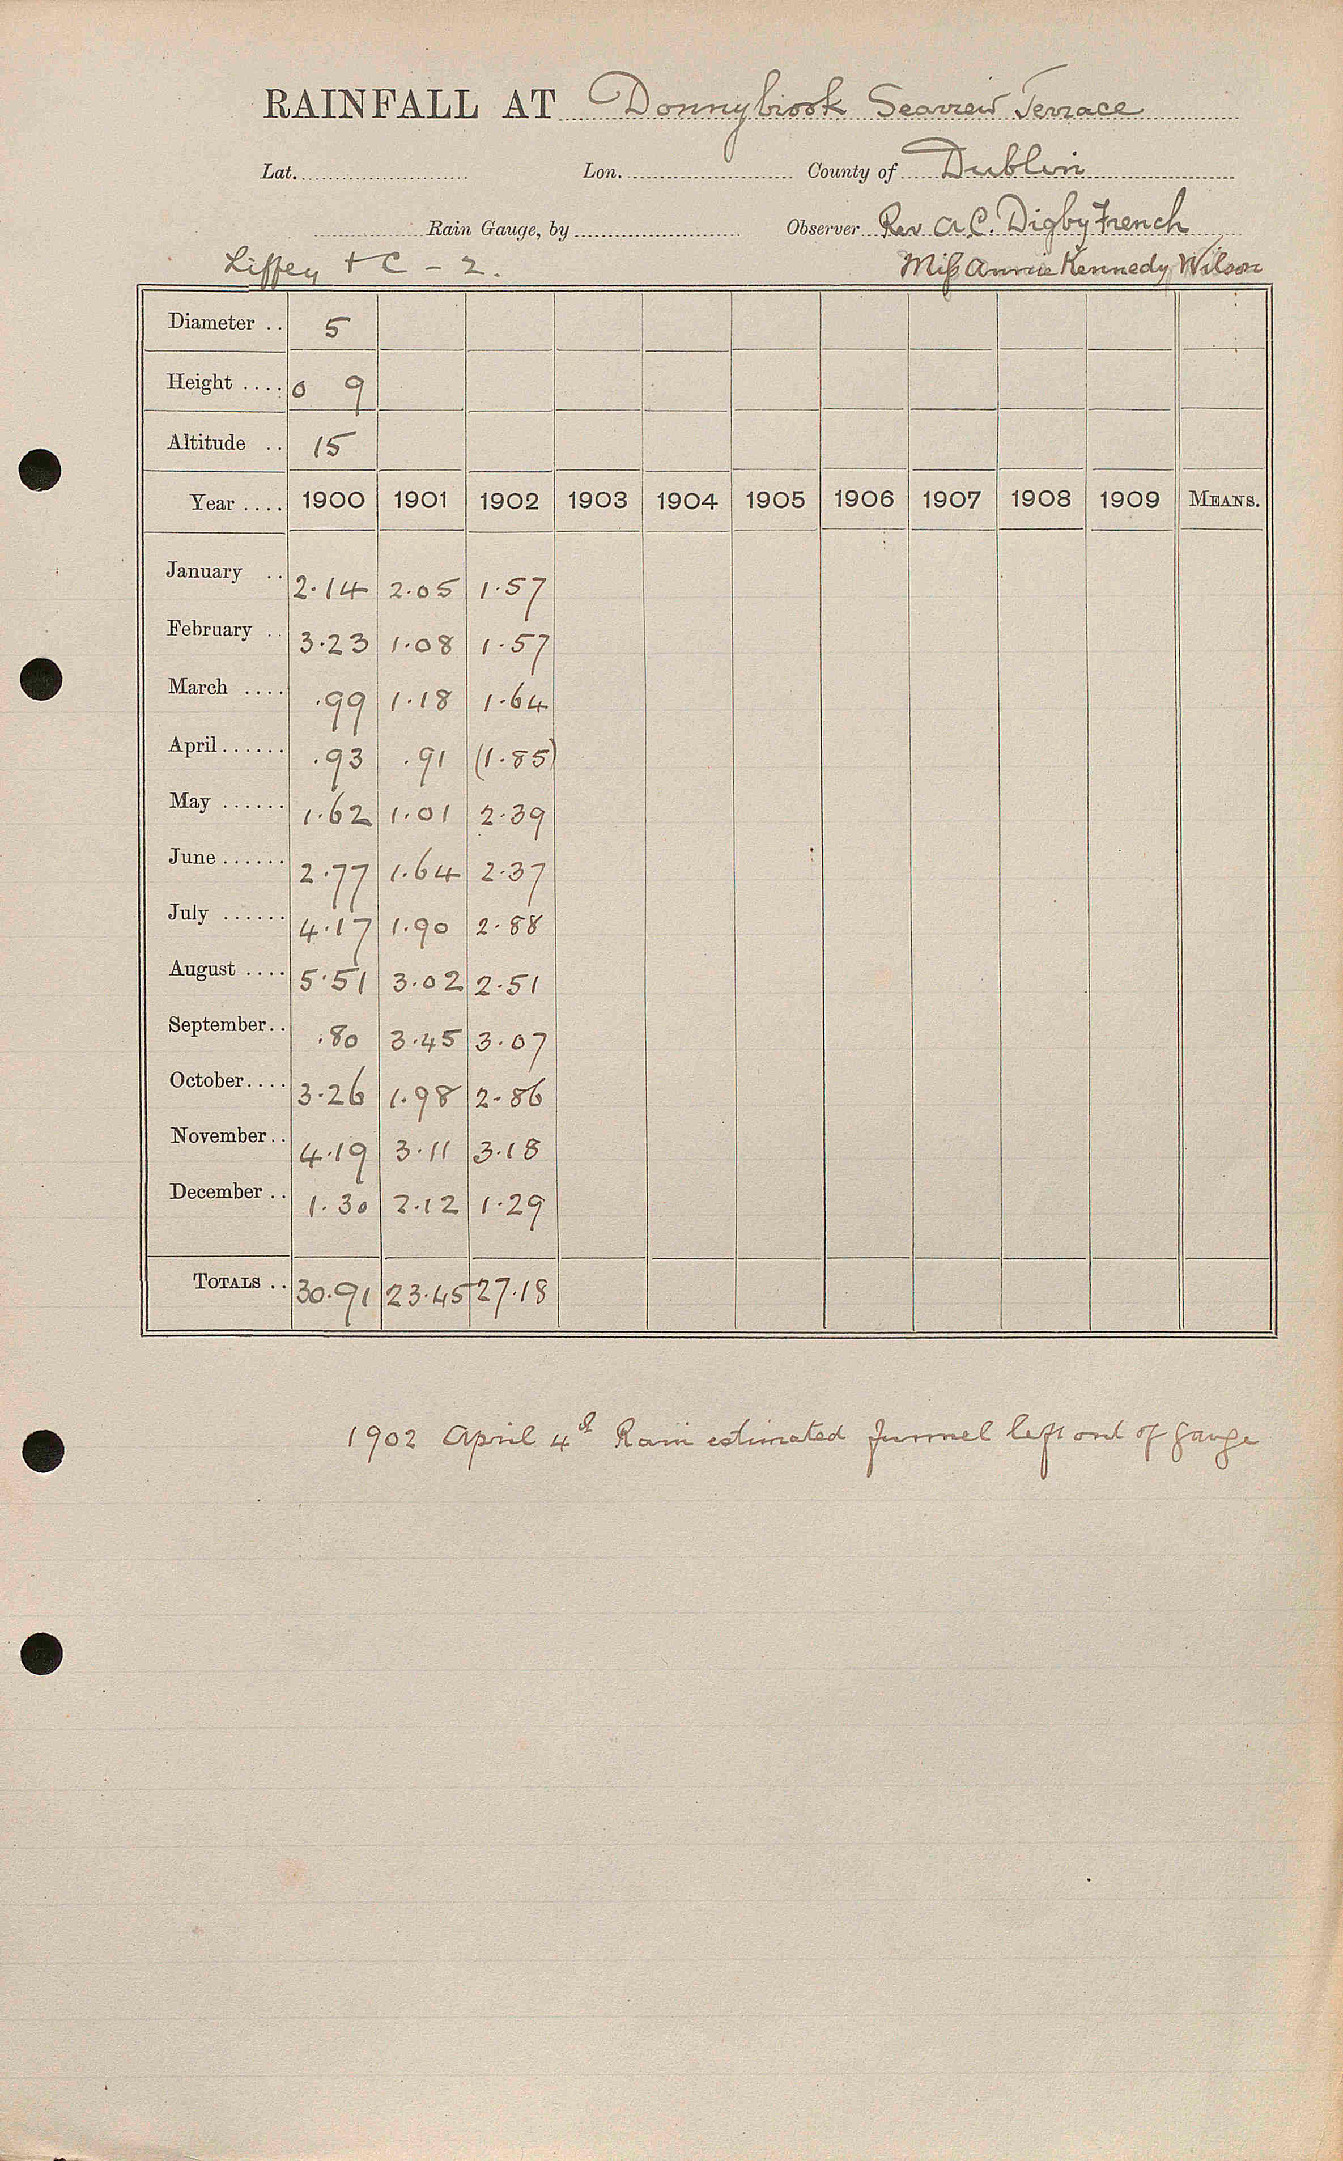 RAINFALL AT Donnybrook Seaview Terrace
Lat. Lon. County of Dublin
Rain Gauge, by Observer Rev A C. Digby French
Liffey + C - 2. Miss Annie Kennedy Wilson
Diameter .. 5
Height .... 0 9
Altitude .. 15
Year .... 1900 1901 1902 1903 1904 1905 1906 1907 1908 1909 MEANS.
January .. 2.14 2.05 1.57
February .. 3.23 1.08 1.57
March .... .99 1.18 1.64
April ...... .93 .91 (1.85)
May ...... 1.62 1.01 2.39
June ...... 2.77 1.64 2.37
July ...... 4.17 1.90 2.88
August .... 5.51 3.02 2.51
September.. .80 3.45 3.07
October.... 3.26 1.98 2.86
November.. 4.19 3.11 3.18
December .. 1.30 2.12 1.29
TOTALS .. 30.91 23.45 27.18
1902 April 4th Rain estimated funnel left out of gauge